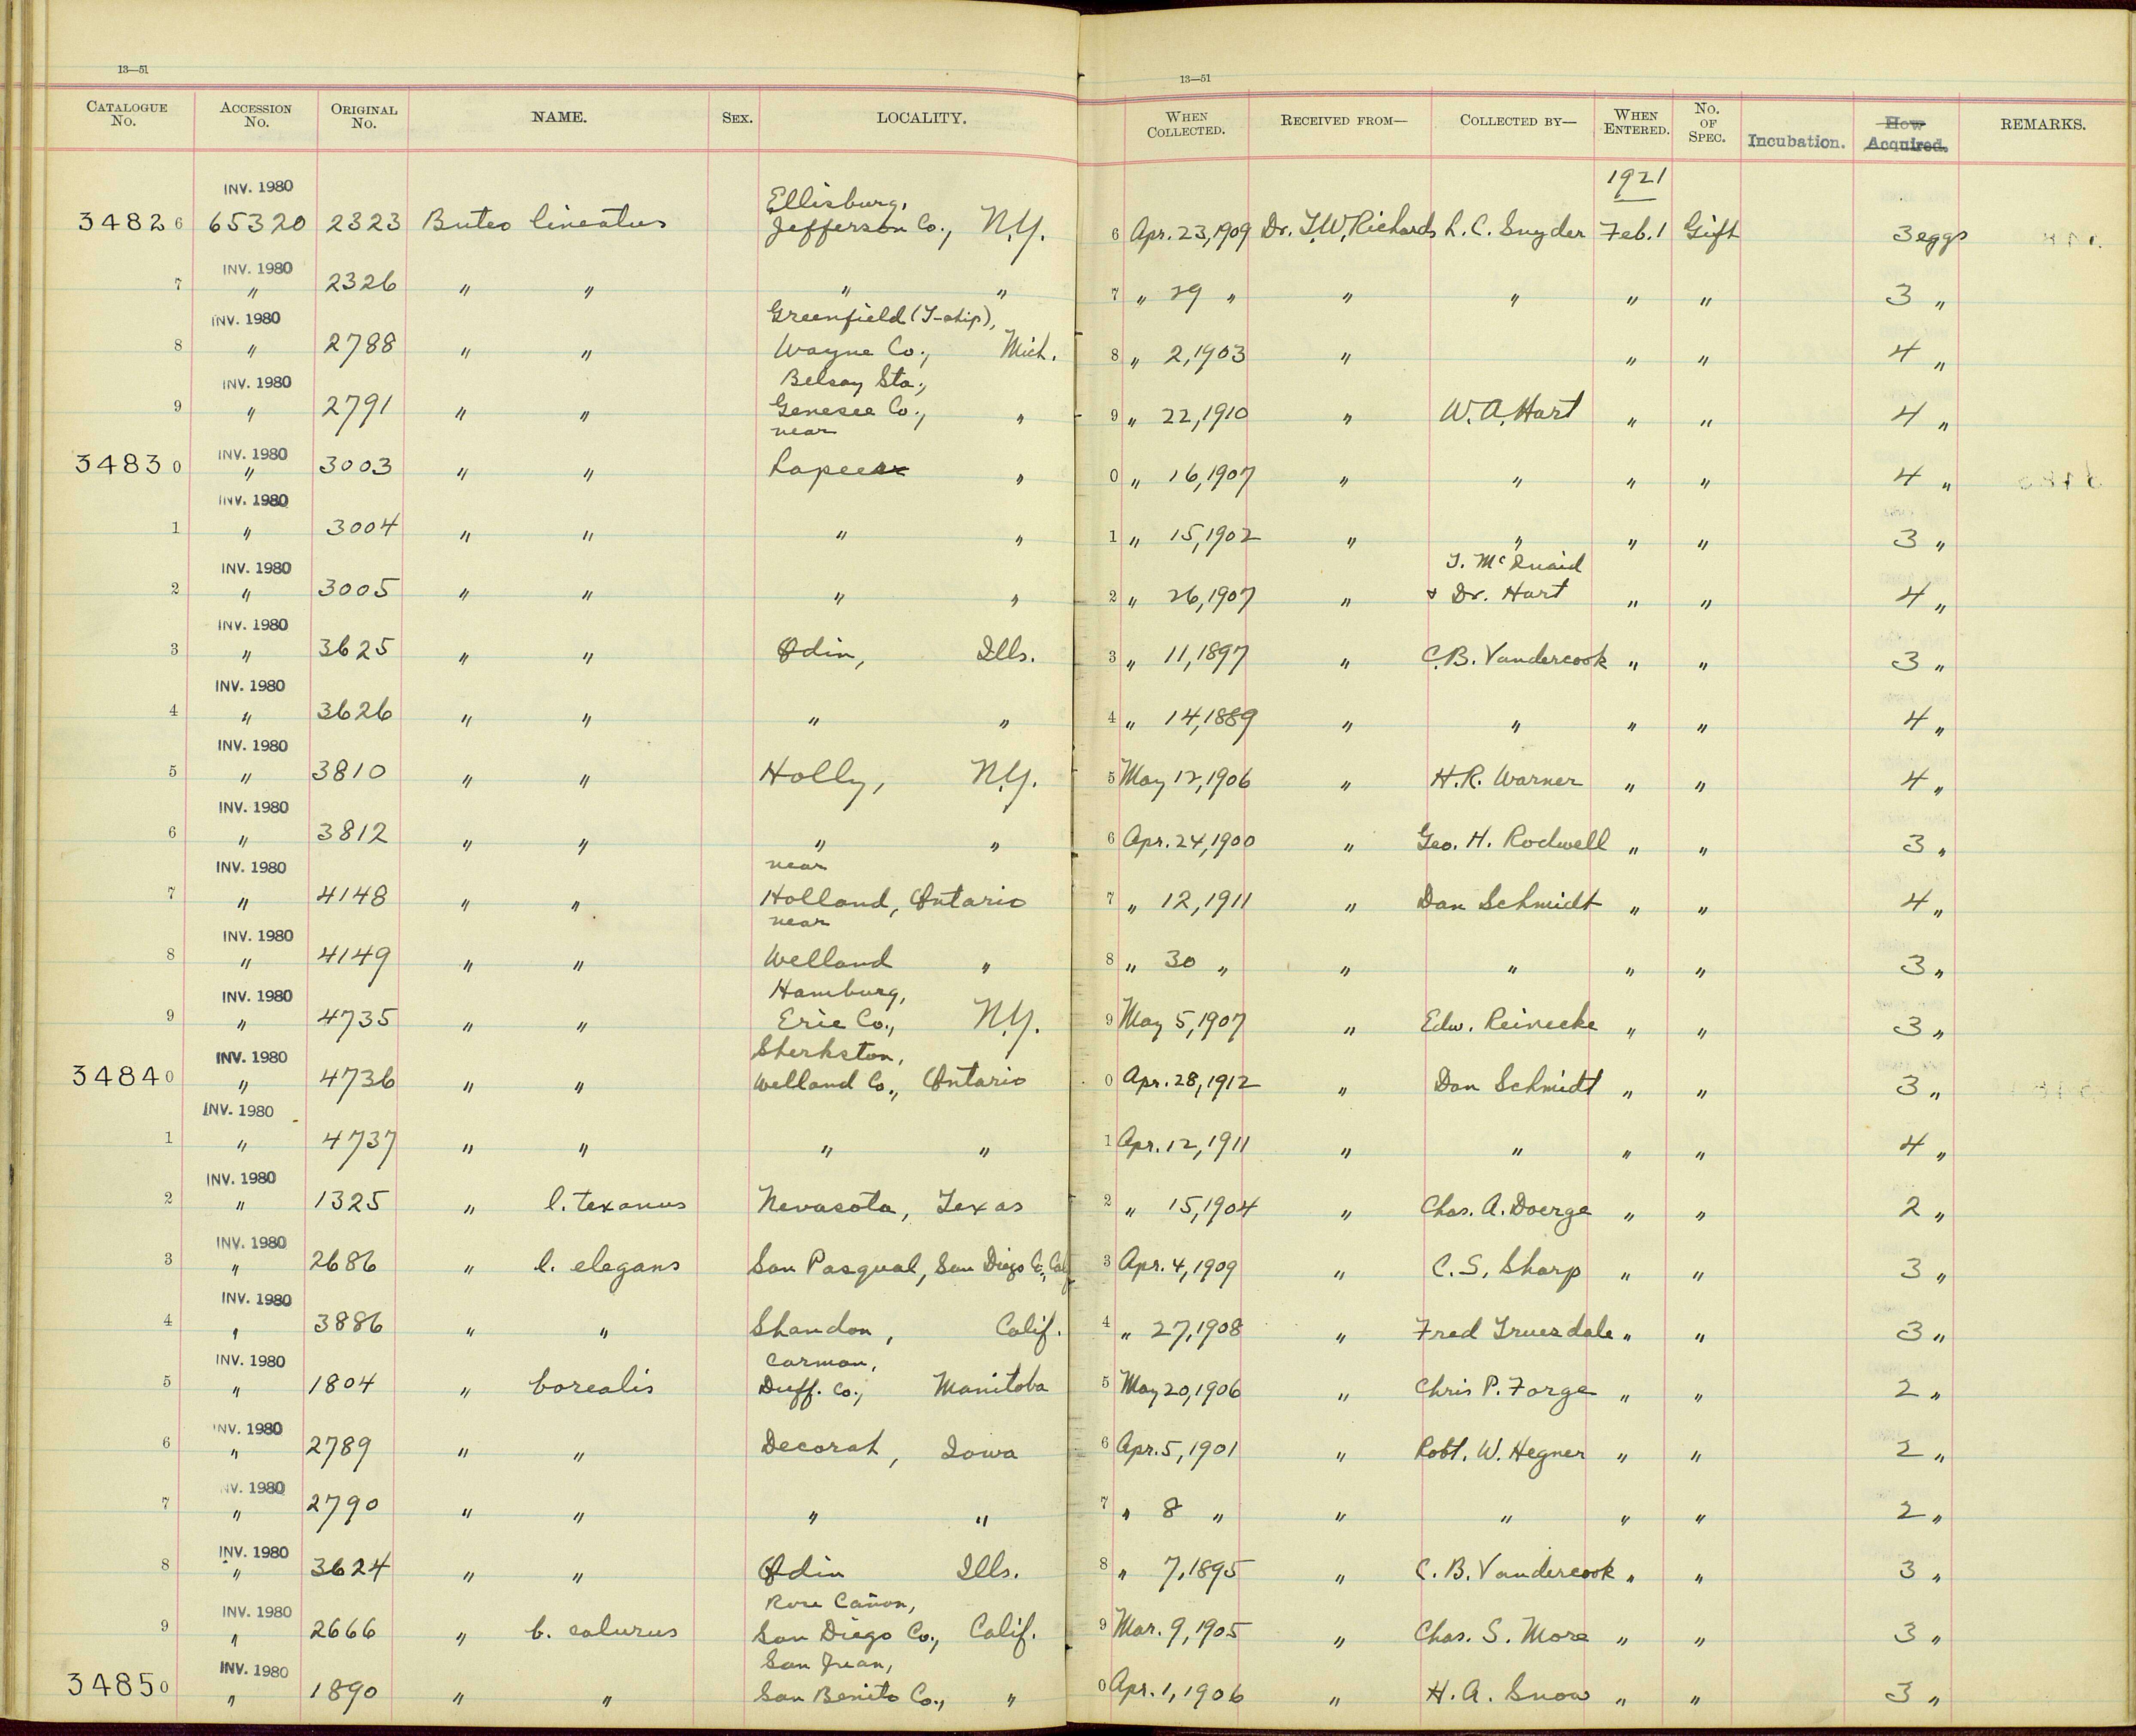 13—51
13—51
CATALOGUE No. ACCESSION No. ORIGINAL No. NAME. SEX. LOCALITY. WHEN COLLECTED. RECEIVED FROM— COLLECTED BY— WHEN ENTERED. No. OF SPEC. Incubation. How Acquired. REMARKS.
1921
INV. 1980 Ellisburg,
34826 65320 2323 Buteo lineatus Jefferson Co., N.Y. 6 Apr. 23, 1909 Dr. T.W. Richards L. C. Snyder Feb. 1 Gift 3 eggs
INV. 1980
7 " 2326 " " " " 7 " 29 " " " " " 3 "
INV. 1980 Greenfield (T-ship),
8 " 2788 " " Wayne Co., Mich. 8 " 2, 1903 " " " 4 "
INV. 1980 Belsay Sta.,
9 " 2791 " " Genesee Co., " 9 " 22, 1910 " W. A. Hart " " 4 "
INV. 1980 near
34830 " 3003 " " Lapeer " 0 " 16, 1907 " " " " 4 "
INV. 1980
1 " 3004 " " " " 1 " 15, 1902 " " " " 3 "
INV. 1980 T. McQuaid
2 " 3005 " " " " 2 " 26, 1907 " & Dr. Hart " " 4 "
INV. 1980
3 " 3625 " " Odin, Ills. 3 " 11, 1897 " C.B. Vandercook " " 3 "
INV. 1980
4 " 3626 " " " " 4 " 14, 1889 " " " " 4 "
INV. 1980
5 " 3810 " " Holly, N.Y. 5 May 12, 1906 " H.R. Warner " " 4 "
INV. 1980
6 " 3812 " " " " 6 Apr. 24, 1900 " Geo. H. Rodwell " " 3 "
INV. 1980 near
7 " 4148 " " Holland, Ontario 7 " 12, 1911 " Dan Schmidt " " 4 "
INV. 1980 near
8 " 4149 " " Welland " 8 " 30 " " " " " 3 "
INV. 1980 Hamburg,
9 " 4735 " " Erie Co., N.Y. 9 May 5, 1907 " Edw. Reinecke " " 3 "
INV. 1980 Sherkston,
34840 " 4736 " " Welland Co., Ontario 0 Apr. 28, 1912 " Dan Schmidt " " 3 "
INV. 1980
1 " 4737 " " " " 1 Apr. 12, 1911 " " " " 4 "
INV. 1980
2 " 1325 " l. texanus Navasota, Texas 2 " 15, 1904 " Chas. A. Doerge " " 2 "
INV. 1980
3 " 2686 " l. elegans San Pasqual, San Diego Co., Calif 3 Apr. 4, 1909 " C. S. Sharp " " 3 "
INV. 1980
4 " 3886 " " Shandon, Calif. 4 " 27, 1908 " Fred Truesdale " " 3 "
INV. 1980 Carman,
5 " 1804 " borealis Duff. Co., Manitoba 5 May 20, 1906 " Chris P. Forge " " 2 "
INV. 1980
6 " 2789 " " Decorah, Iowa 6 Apr. 5, 1901 " Robt. W. Hegner " " 2 "
INV. 1980
7 " 2790 " " " " 7 " 8 " " " " " 2 "
INV. 1980
8 " 3624 " " Odin Ills. 8 " 7, 1895 " C. B. Vandercook " " 3 "
INV. 1980 Rose Cañon,
9 " 2666 " b. calurus San Diego Co., Calif. 9 Mar. 9, 1905 " Chas. S. More " " 3 "
INV. 1980 San Juan,
34850 " 1890 " " San Benito Co., " 0 Apr. 1, 1906 " H. A. Snow " " 3 "